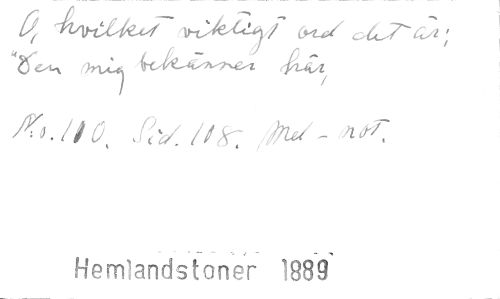 O, hvilket viktigt ord det är;
"Den mig bekänner här,
No. 110. Sid. 108. Med - not.
Hemlandstoner 1889